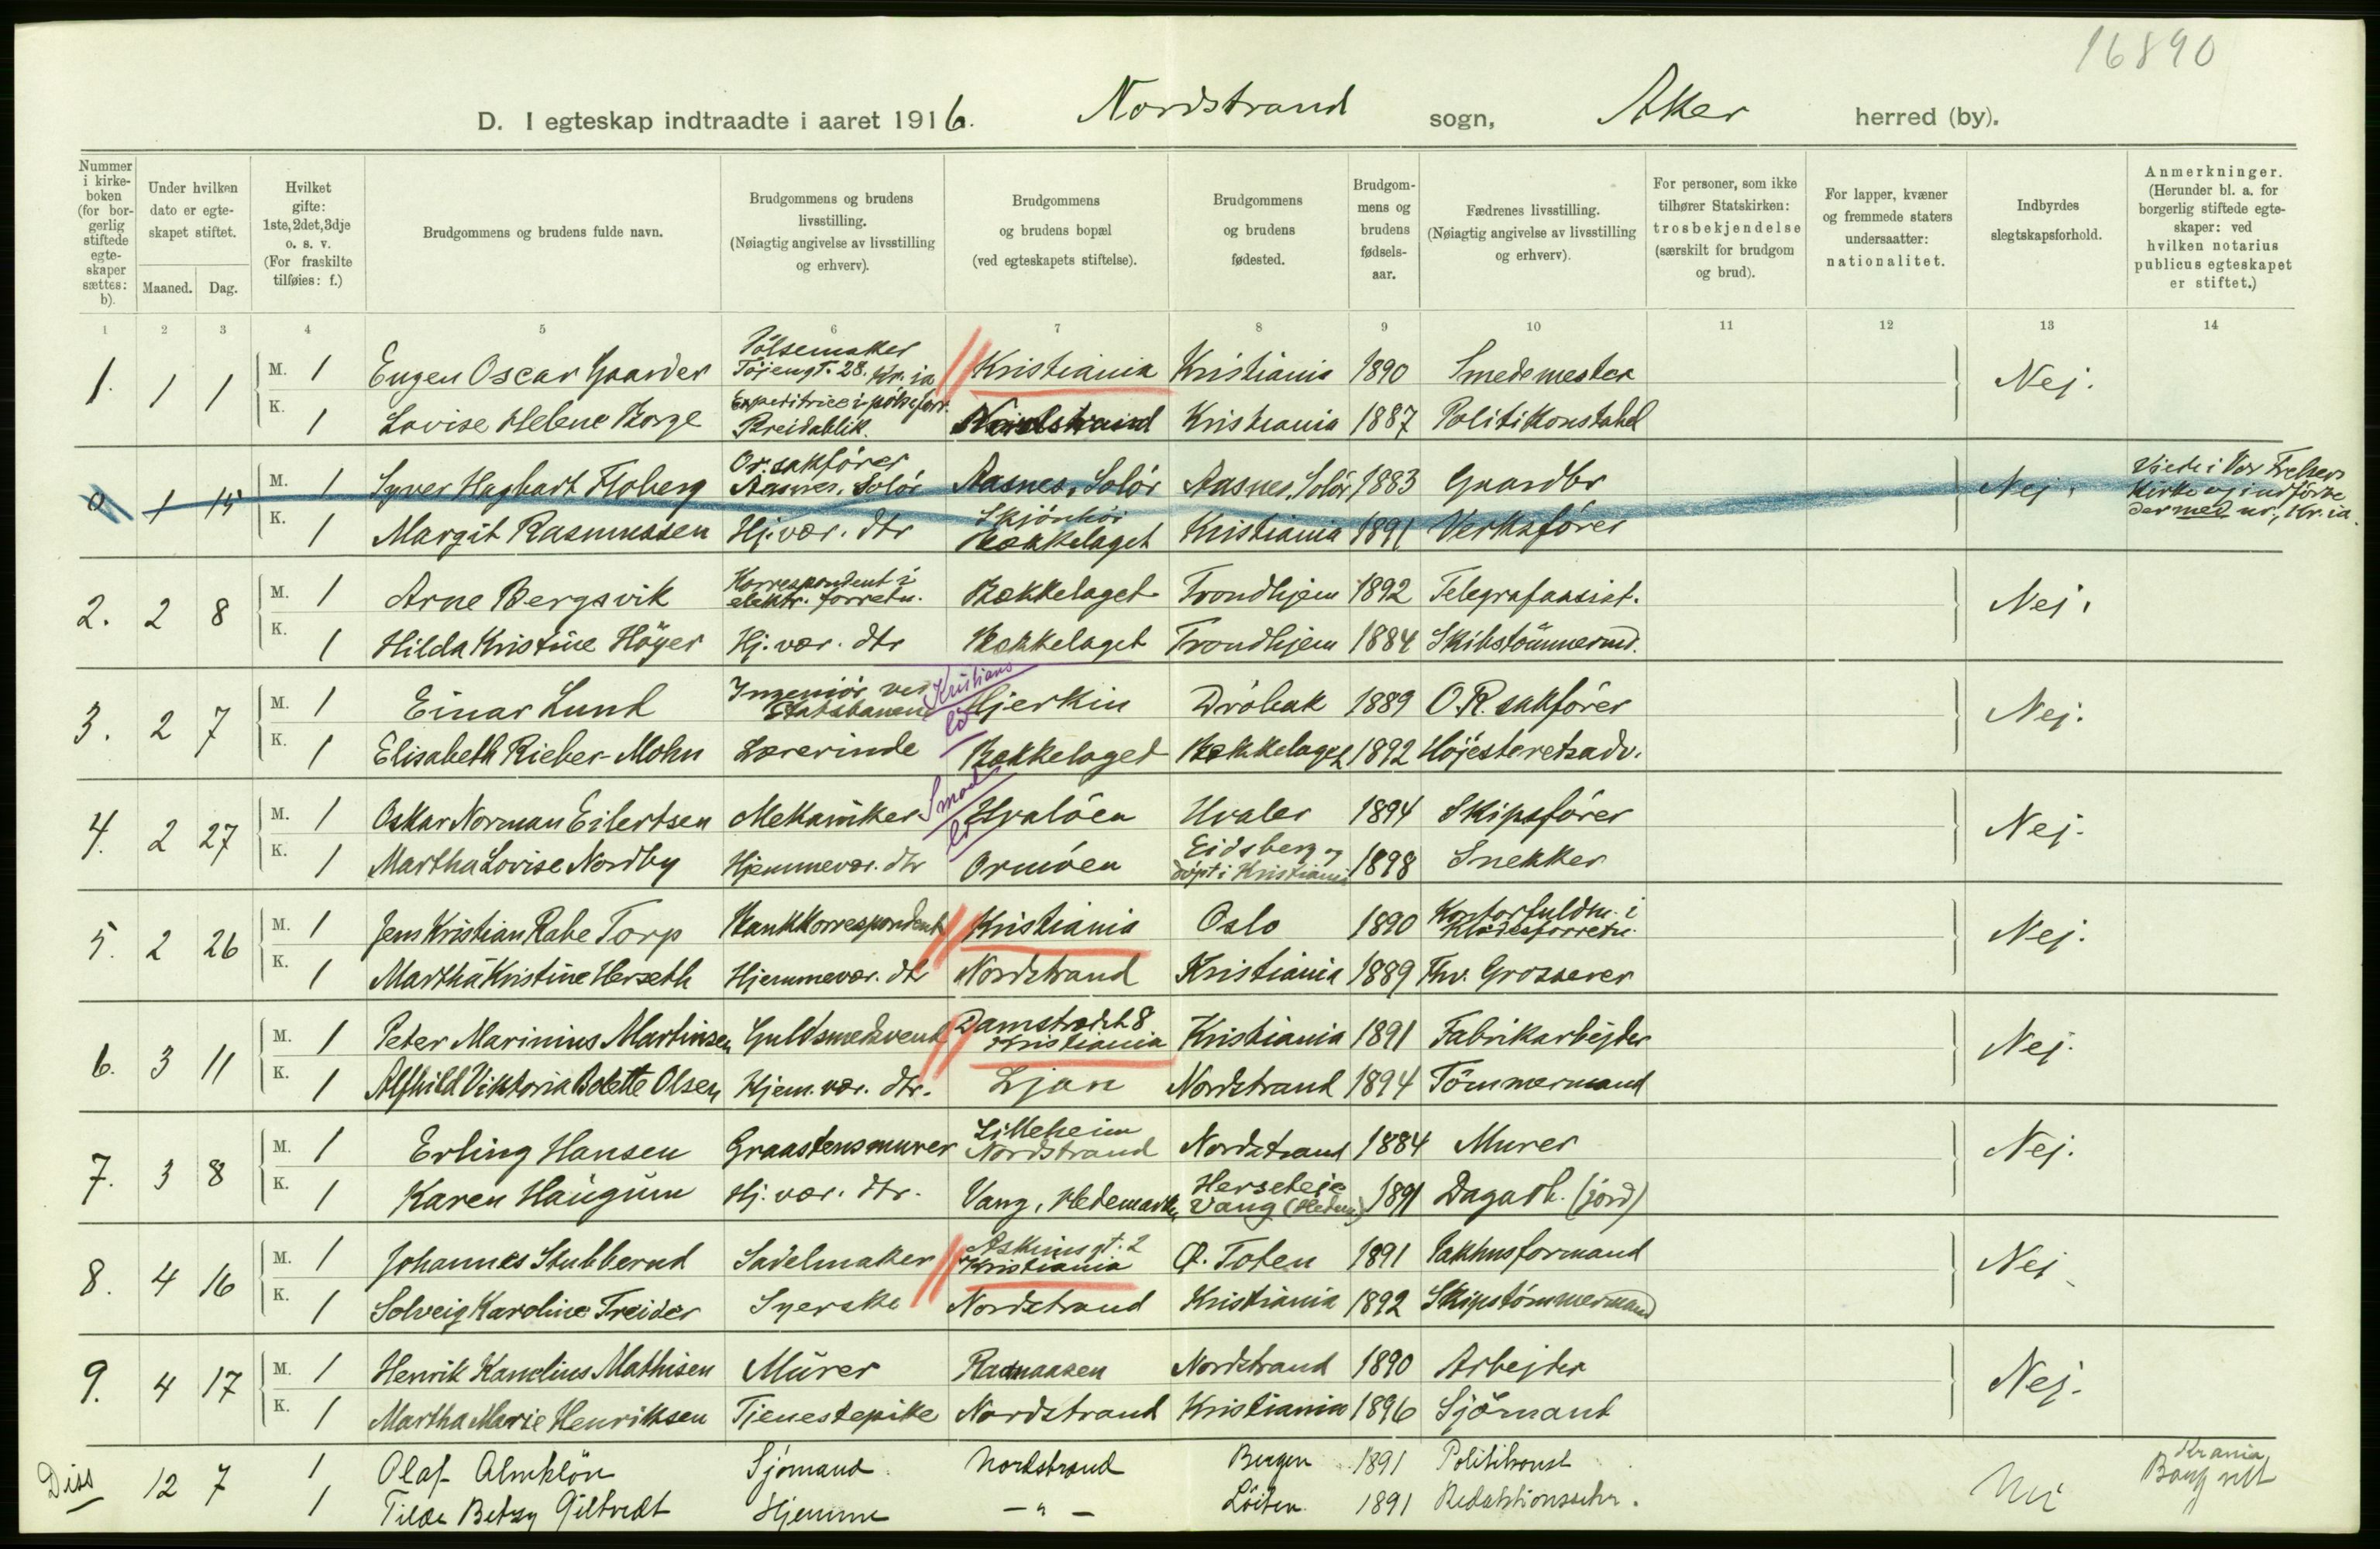 16890
D. I egteskap indtraadte i aaret 1916. Nordstrand sogn, Aker herred (by).
Nummer i kirke-boken (for bor-gerlig stiftede egte-skaper sættes: b).
Under hvilken dato er egte-skapet stiftet.
Maaned. Dag.
Hvilket gifte: 1ste, 2det, 3dje o. s. v. (For fraskilte tilføies: f.)
Brudgommens og brudens fulde navn.
Brudgommens og brudens livsstilling. (Nøiagtig angivelse av livsstilling og erhverv).
Brudgommens og brudens bopæl (ved egteskapets stiftelse).
Brudgommens og brudens fødested.
Brudgom-mens og brudens fødsels-aar.
Fædrenes livsstilling. (Nøiagtig angivelse av livsstilling og erhverv).
For personer, som ikke tilhører Statskirken: trosbekjendelse (særskilt for brudgom og brud).
For lapper, kvæner og fremmede staters undersaatter: nationalitet.
Indbyrdes slegtskapsforhold.
Anmerkninger. (Herunder bl. a. for borgerlig stiftede egte-skaper: ved hvilken notarius publicus egteskapet er stiftet.)
1 2 3 4 5 6 7 8 9 10 11 12 13 14
1. 1 1 M. 1 Eugen Oscar Gaarder Pölsemaker Töjengt. 28. Kr.ia Kristiania Kristiania 1890 Smedemester Nej.
K. 1 Lovise Helene Borge Expeditrice i pölsefort. Breidablik. Nordstrand Kristiania 1887 Politikonstabel
0 1 15 M. 1 Syver Hagbart Floberg Or. sakförer Aasnes, Solör Aasnes, Solör Aasnes, Solör 1883 Gaardbr Nej. Viede i Vor Frelsers Kirke og indförte der med nr., Kr.ia.
K. 1 Margit Rasmussen Hj. vær. dtr Skjönhöi Bækkelaget Kristiania 1891 Verksförer
2. 2 8 M. 1 Arne Bergsvik Korrespondent i elektr. forretn. Bækkelaget Trondhjem 1892 Telegrafassist. Nej.
K. 1 Hilda Kristine Höyer Hj. vær. dtr Bækkelaget Trondhjem 1884 Skibstömmermd.
3. 2 7 M. 1 Einar Lund Ingeniör ved Statsbanen Kristians Hjerkin Dröbak 1889 O.R. sakförer Nej.
K. 1 Elisabeth Rieber-Mohn Lærerinde Bækkelaget Bækkelaget 1892 Höjesteretsadv.
4. 2 27 M. 1 Oskar Norman Eilertsen Mekaniker Smaal Hvalöen Hvaler 1894 Skipsförer Nej.
K. 1 Martha Lovise Nordby Hjemmevær. dtr Ormöen Eidsberg döpt i Kristiania 1898 Snekker
5. 2 26 M. 1 Jens Kristian Rabe Torp Bankkorrespondent Kristiania Oslo 1890 Kontorfuldm. i Klædesforretn. Nej.
K. 1 Martha Kristine Herseth Hjemmevær. dtr Nordstrand Kristiania 1889 Fhv. Grosserer
6. 3 11 M. 1 Peter Marinius Martinsen Guldsmedsvend Damstrædet 8 Kristiania Kristiania 1891 Fabrikarbejder Nej.
K. 1 Alfhild Viktoria Bolette Olsen Hjem. vær. dtr. Ljan Nordstrand 1894 Tömmermand
7. 3 8 M. 1 Erling Hansen Graastensmurer Lilleheim Nordstrand Nordstrand 1884 Murer Nej.
K. 1 Karen Haugum Hj. vær. dtr. Vang, Hedemarken Herseteje Vang (Hedm) 1891 Dagarb. (jord)
8. 4 16 M. 1 Johannes Stubberud Sadelmaker Askimsgt. 2 Kristiania Ø. Toten 1891 Pakhusformand Nej
K. 1 Solveig Karoline Treider Syerske Nordstrand Kristiania 1892 Skipstömmermand
9. 4 17 M. 1 Henrik Kornelius Mathisen Murer Raanaasen Nordstrand 1890 Arbejder Nej.
K. 1 Martha Marie Henriksen Tjenestepike Nordstrand Kristiania 1896 Sjömand
Diss 12 7 1 Olaf Almklöv Sjömand Nordstrand Bergen 1891 Politikonst Nei Krania Borg. rett
1 Tilda Betzy Giltvedt Hjemme - " - Löiten 1891 Redaktionssekr.